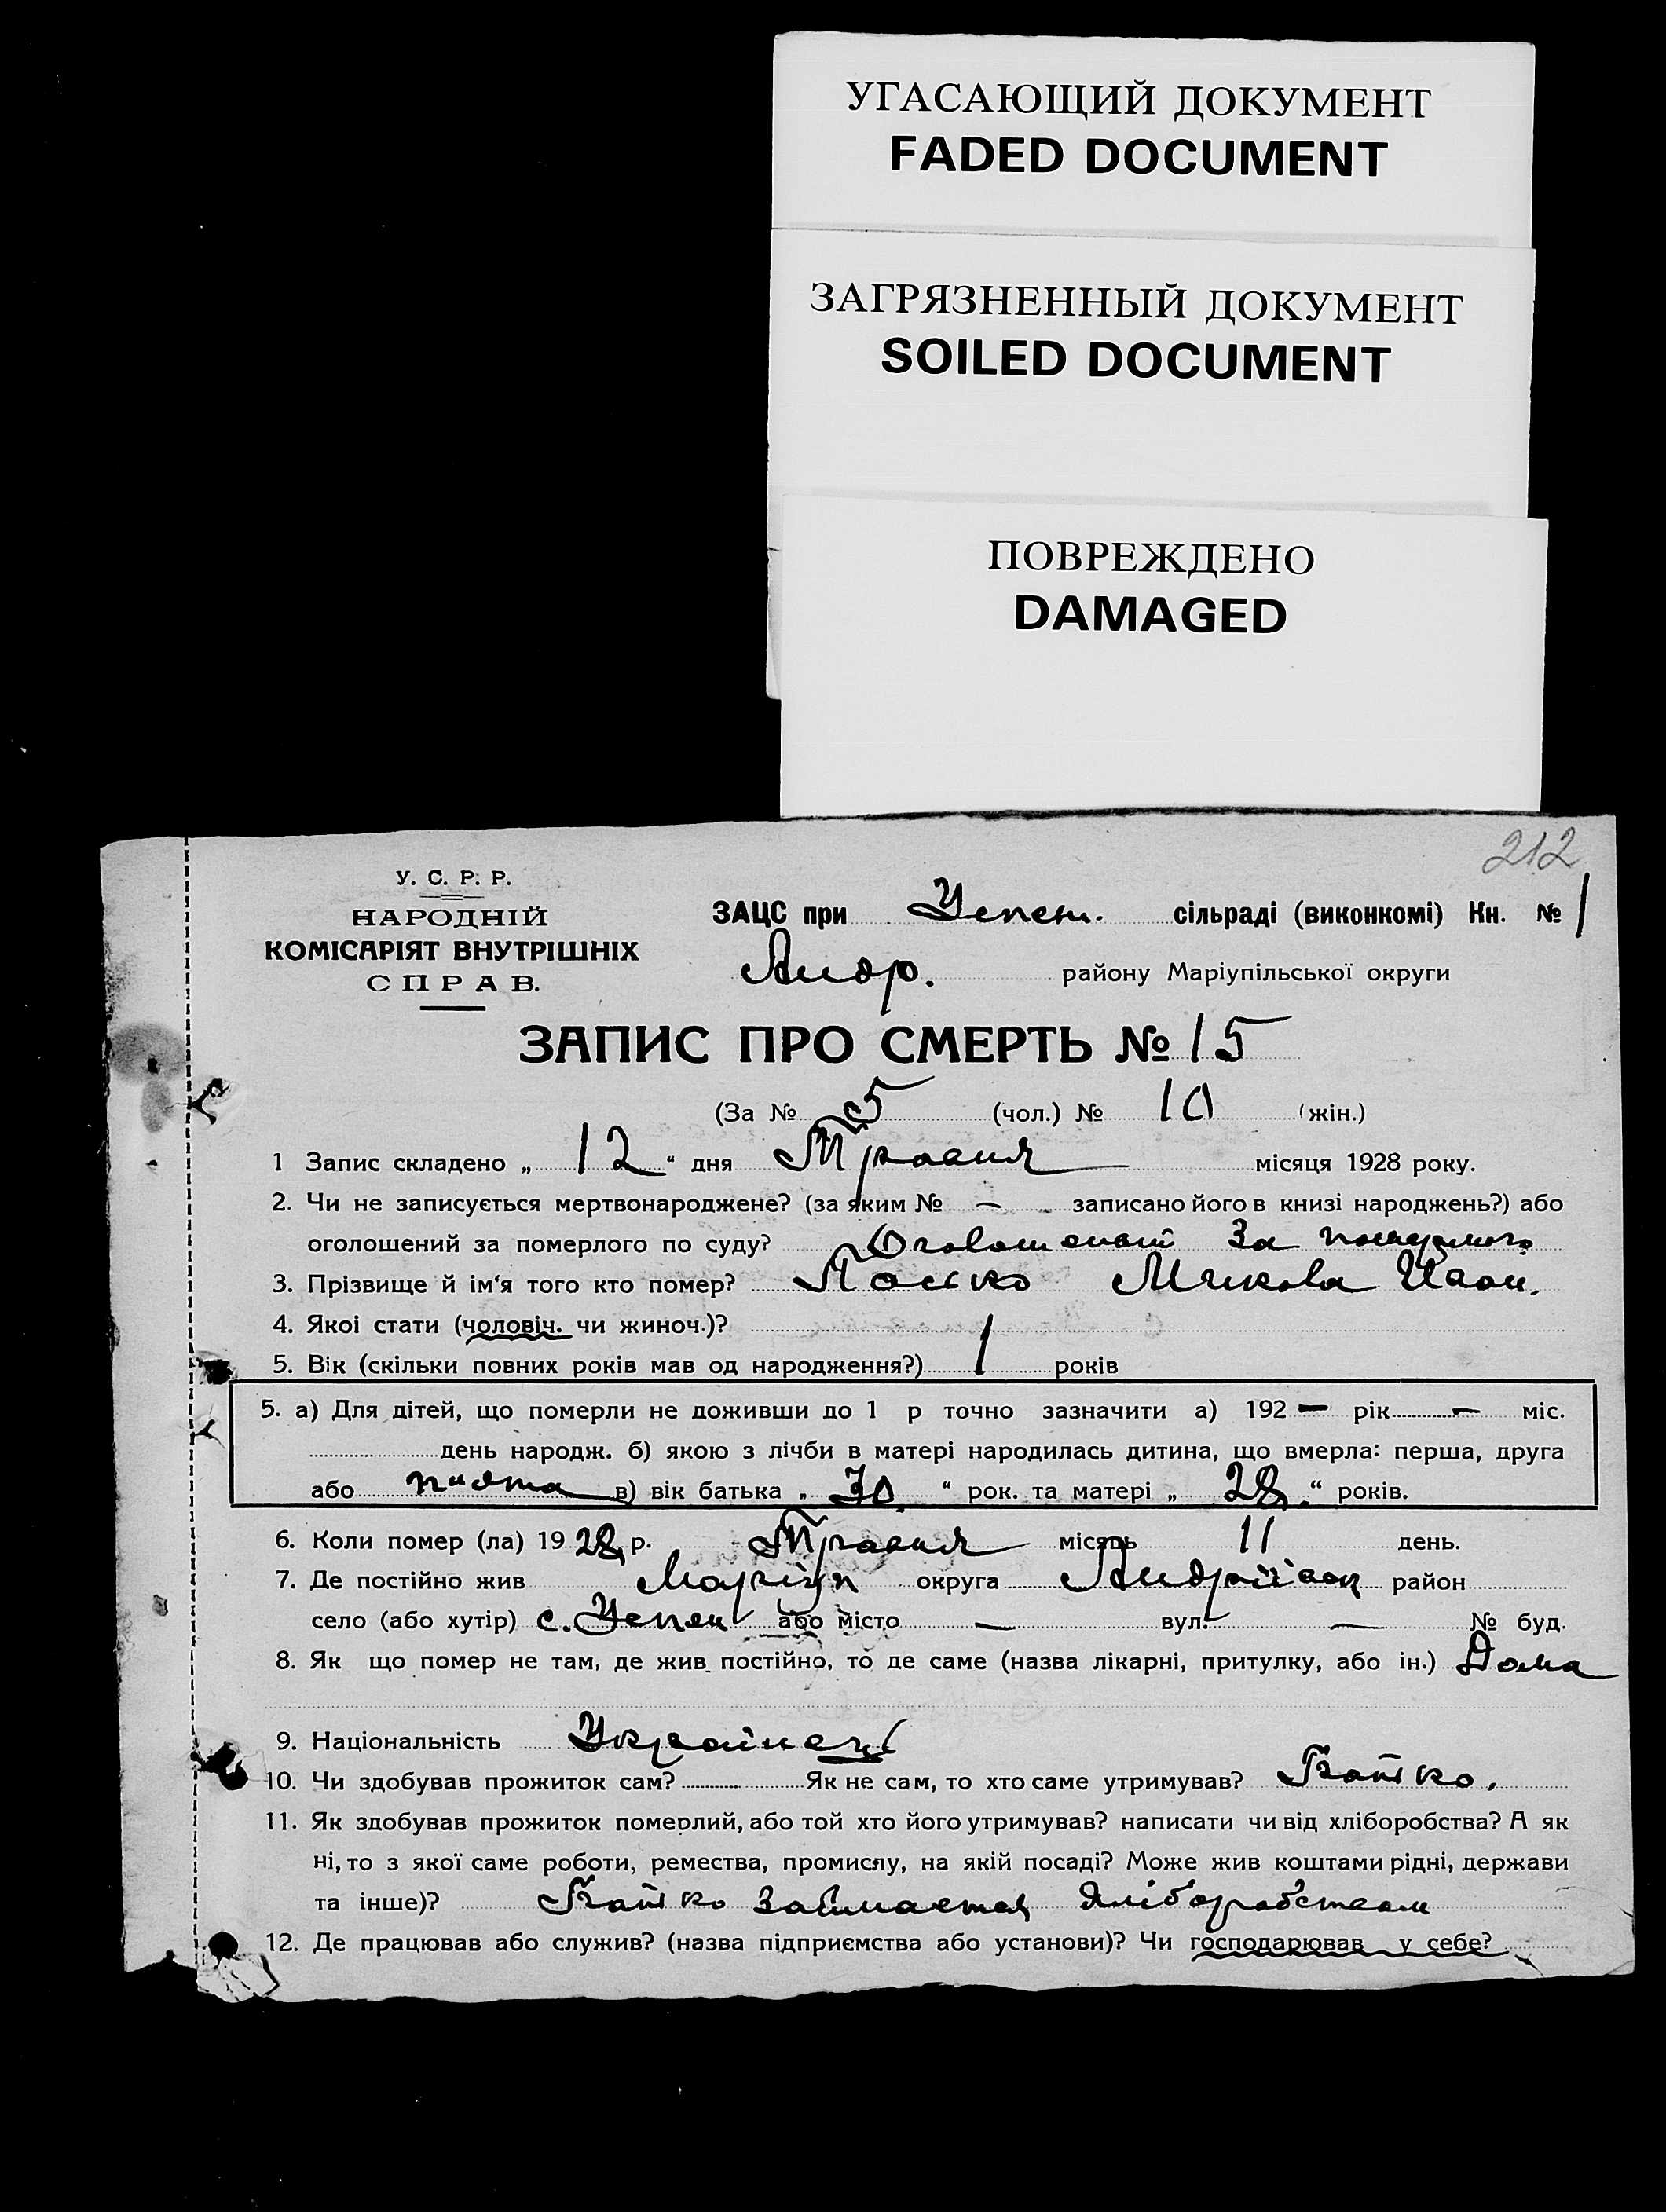 УГАСАЮЩИЙ ДОКУМЕНТ
FADED DOCUMENT
ЗАГРЯЗНЕННЫЙ ДОКУМЕНТ
SOILED DOCUMENT
ПОВРЕЖДЕНО
DAMAGED
212
У. С. Р. Р.
НАРОДНІЙ
КОМІСАРІЯТ ВНУТРІШНІХ
СПРАВ.
ЗАЦС при Успен. сільраді (виконкомі) Кн. № 1
Андр. району Маріупільської округи
ЗАПИС ПРО СМЕРТЬ № 15
(За № 5 (чол.) № 10 (жін.)
1 Запис складено „ 12 “ дня Травня місяця 1928 року.
2. Чи не записується мертвонароджене? (за яким № — записано його в книзі народжень?) або
оголошений за померлого по суду? За
3. Прізвище й ім‘я того кто помер? Микола Иван.
4. Якоі стати (чоловіч. чи жиноч.)?
5. Вік (скільки повних років мав од народження?) 1 років
5. а) Для дітей, що померли не доживши до 1 р точно зазначити а) 192 — рік — міс.
день народж. б) якою з лічби в матері народилась дитина, що вмерла: перша, друга
або п"ята в) вік батька „ 30 “ рок. та матері „ 28. “ років.
6. Коли помер (ла) 19 28 р. Травня місяць 11 день.
7. Де постійно жив Маріуп округа район
село (або хутір) с. Успен або місто — вул. — № буд.
8. Як що помер не там, де жив постійно, то де саме (назва лікарні, притулку, або ін.) Дома
9. Національність Українець
10. Чи здобував прожиток сам? Як не сам, то хто саме утримував? Батько.
11. Як здобував прожиток померлий, або той хто його утримував? написати чи від хліборобства? А як
ні, то з якої саме роботи, ремества, промислу, на якій посаді? Може жив коштами рідні, держави
та інше)? Батько Займается хліборобством
12. Де працював або служив? (назва підприємства або установи)? Чи господарював у себе?